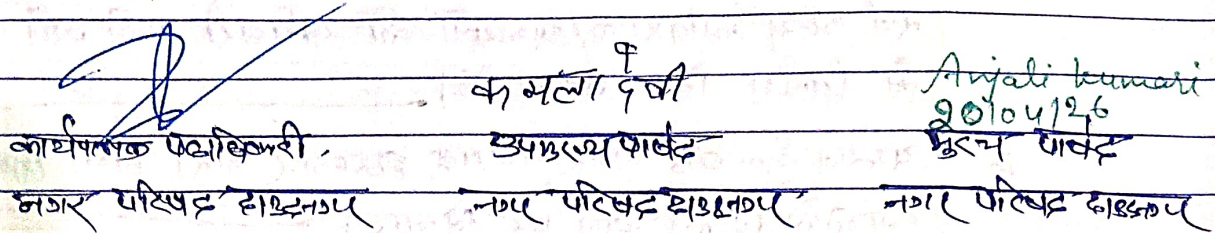 कमला देवी
Anjali kumari
20/04/26
कार्यपालक पदाधिकारी. उपमुख्य पार्षद मुख्य पार्षद
नगर परिषद दाउदनगर नगर परिषद दाउदनगर नगर परिषद दाउदनगर